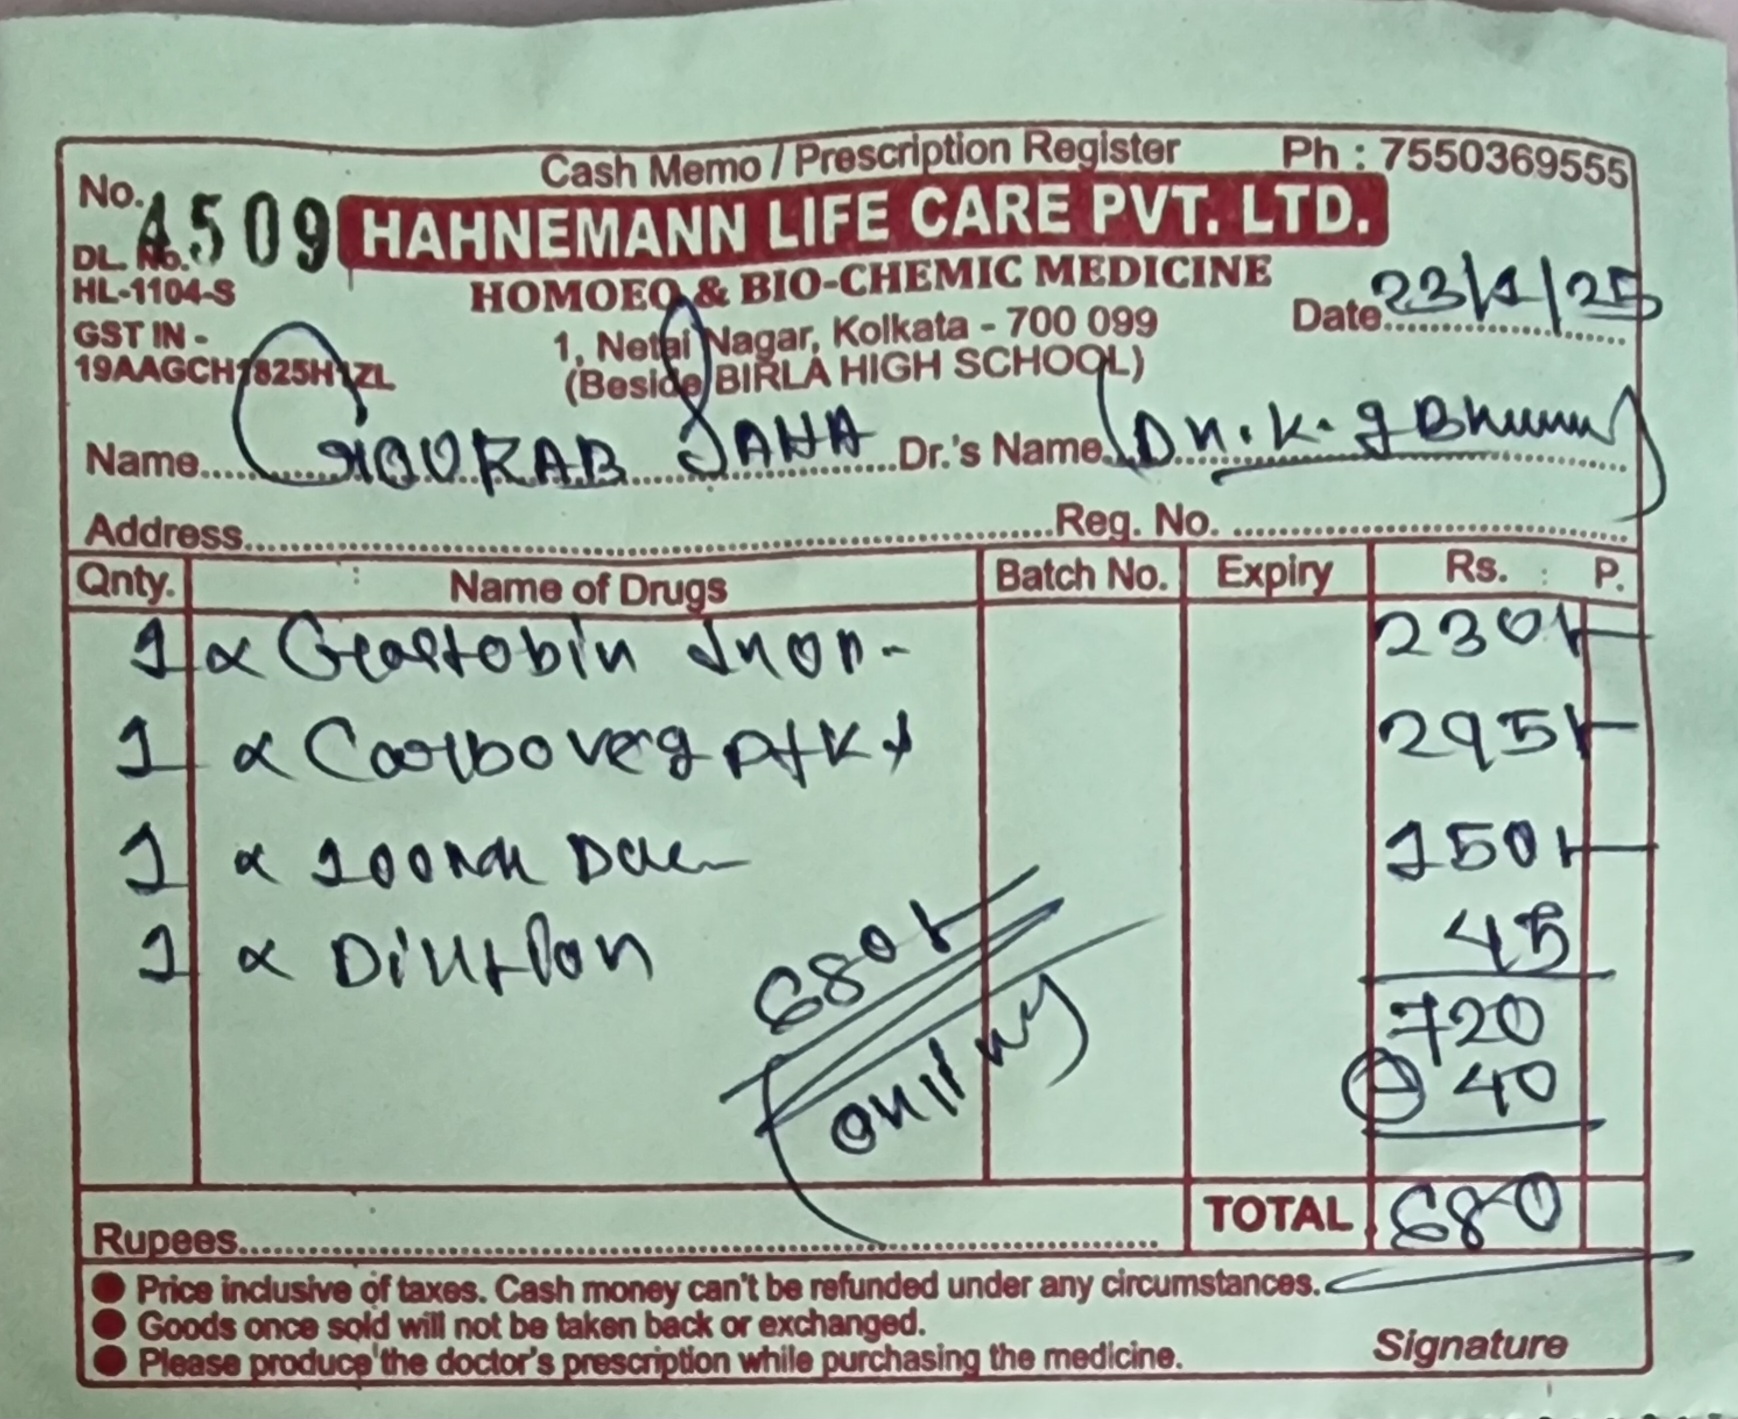 Cash Memo / Prescription Register Ph : 7550369555
No. 4509 HAHNEMANN LIFE CARE PVT. LTD.
DL. No.
HL-1104-S HOMOEO & BIO-CHEMIC MEDICINE
GST IN - 1, Netai Nagar, Kolkata - 700 099 Date 23/1/25
19AAGCH1825H1ZL (Beside BIRLA HIGH SCHOOL)
Name GOURAB SAHA Dr.'s Name Dr. K. g
Address Reg. No.
Qnty. Name of Drugs Batch No. Expiry Rs. P.
1 x 230/-
1 x Carbo veg 295/-
1 x 150/-
1 x Dilution 45
680/- 720
only - 40
Rupees TOTAL 680
Price inclusive of taxes. Cash money can't be refunded under any circumstances.
Goods once sold will not be taken back or exchanged.
Please produce the doctor's prescription while purchasing the medicine. Signature